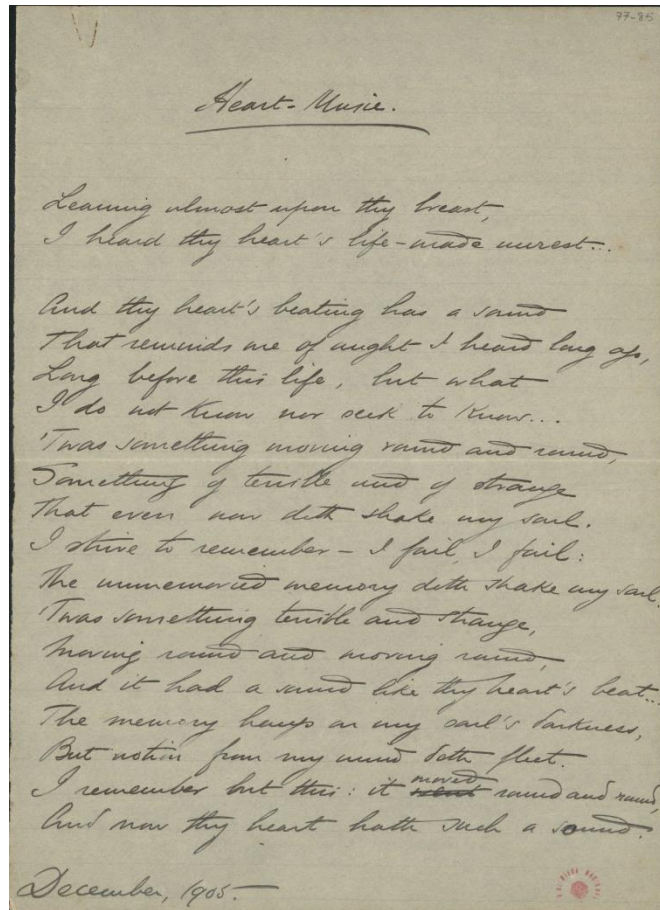 77-85
Heart-Music.
Leaning almost upon thy breast,
I heard thy heart's life-made unrest...
And thy heart's beating has a sound
That reminds me of aught I heard long ago,
Long before this life, but what
I do not know nor seek to know...
'Twas something moving round and round,
Something of terrible and of strange
That even now doth shake my soul.
I strive to remember – I fail, I fail:
The unmemoried memory doth shake my soul.
'Twas something terrible and strange,
Moving round and moving round,
And it had a sound like thy heart's beat...
The memory hangs on my soul's darkness,
But notion from my mind doth fleet.
I remember but this: it moved round and round,
And now thy heart hath such a sound.
December, 1905.